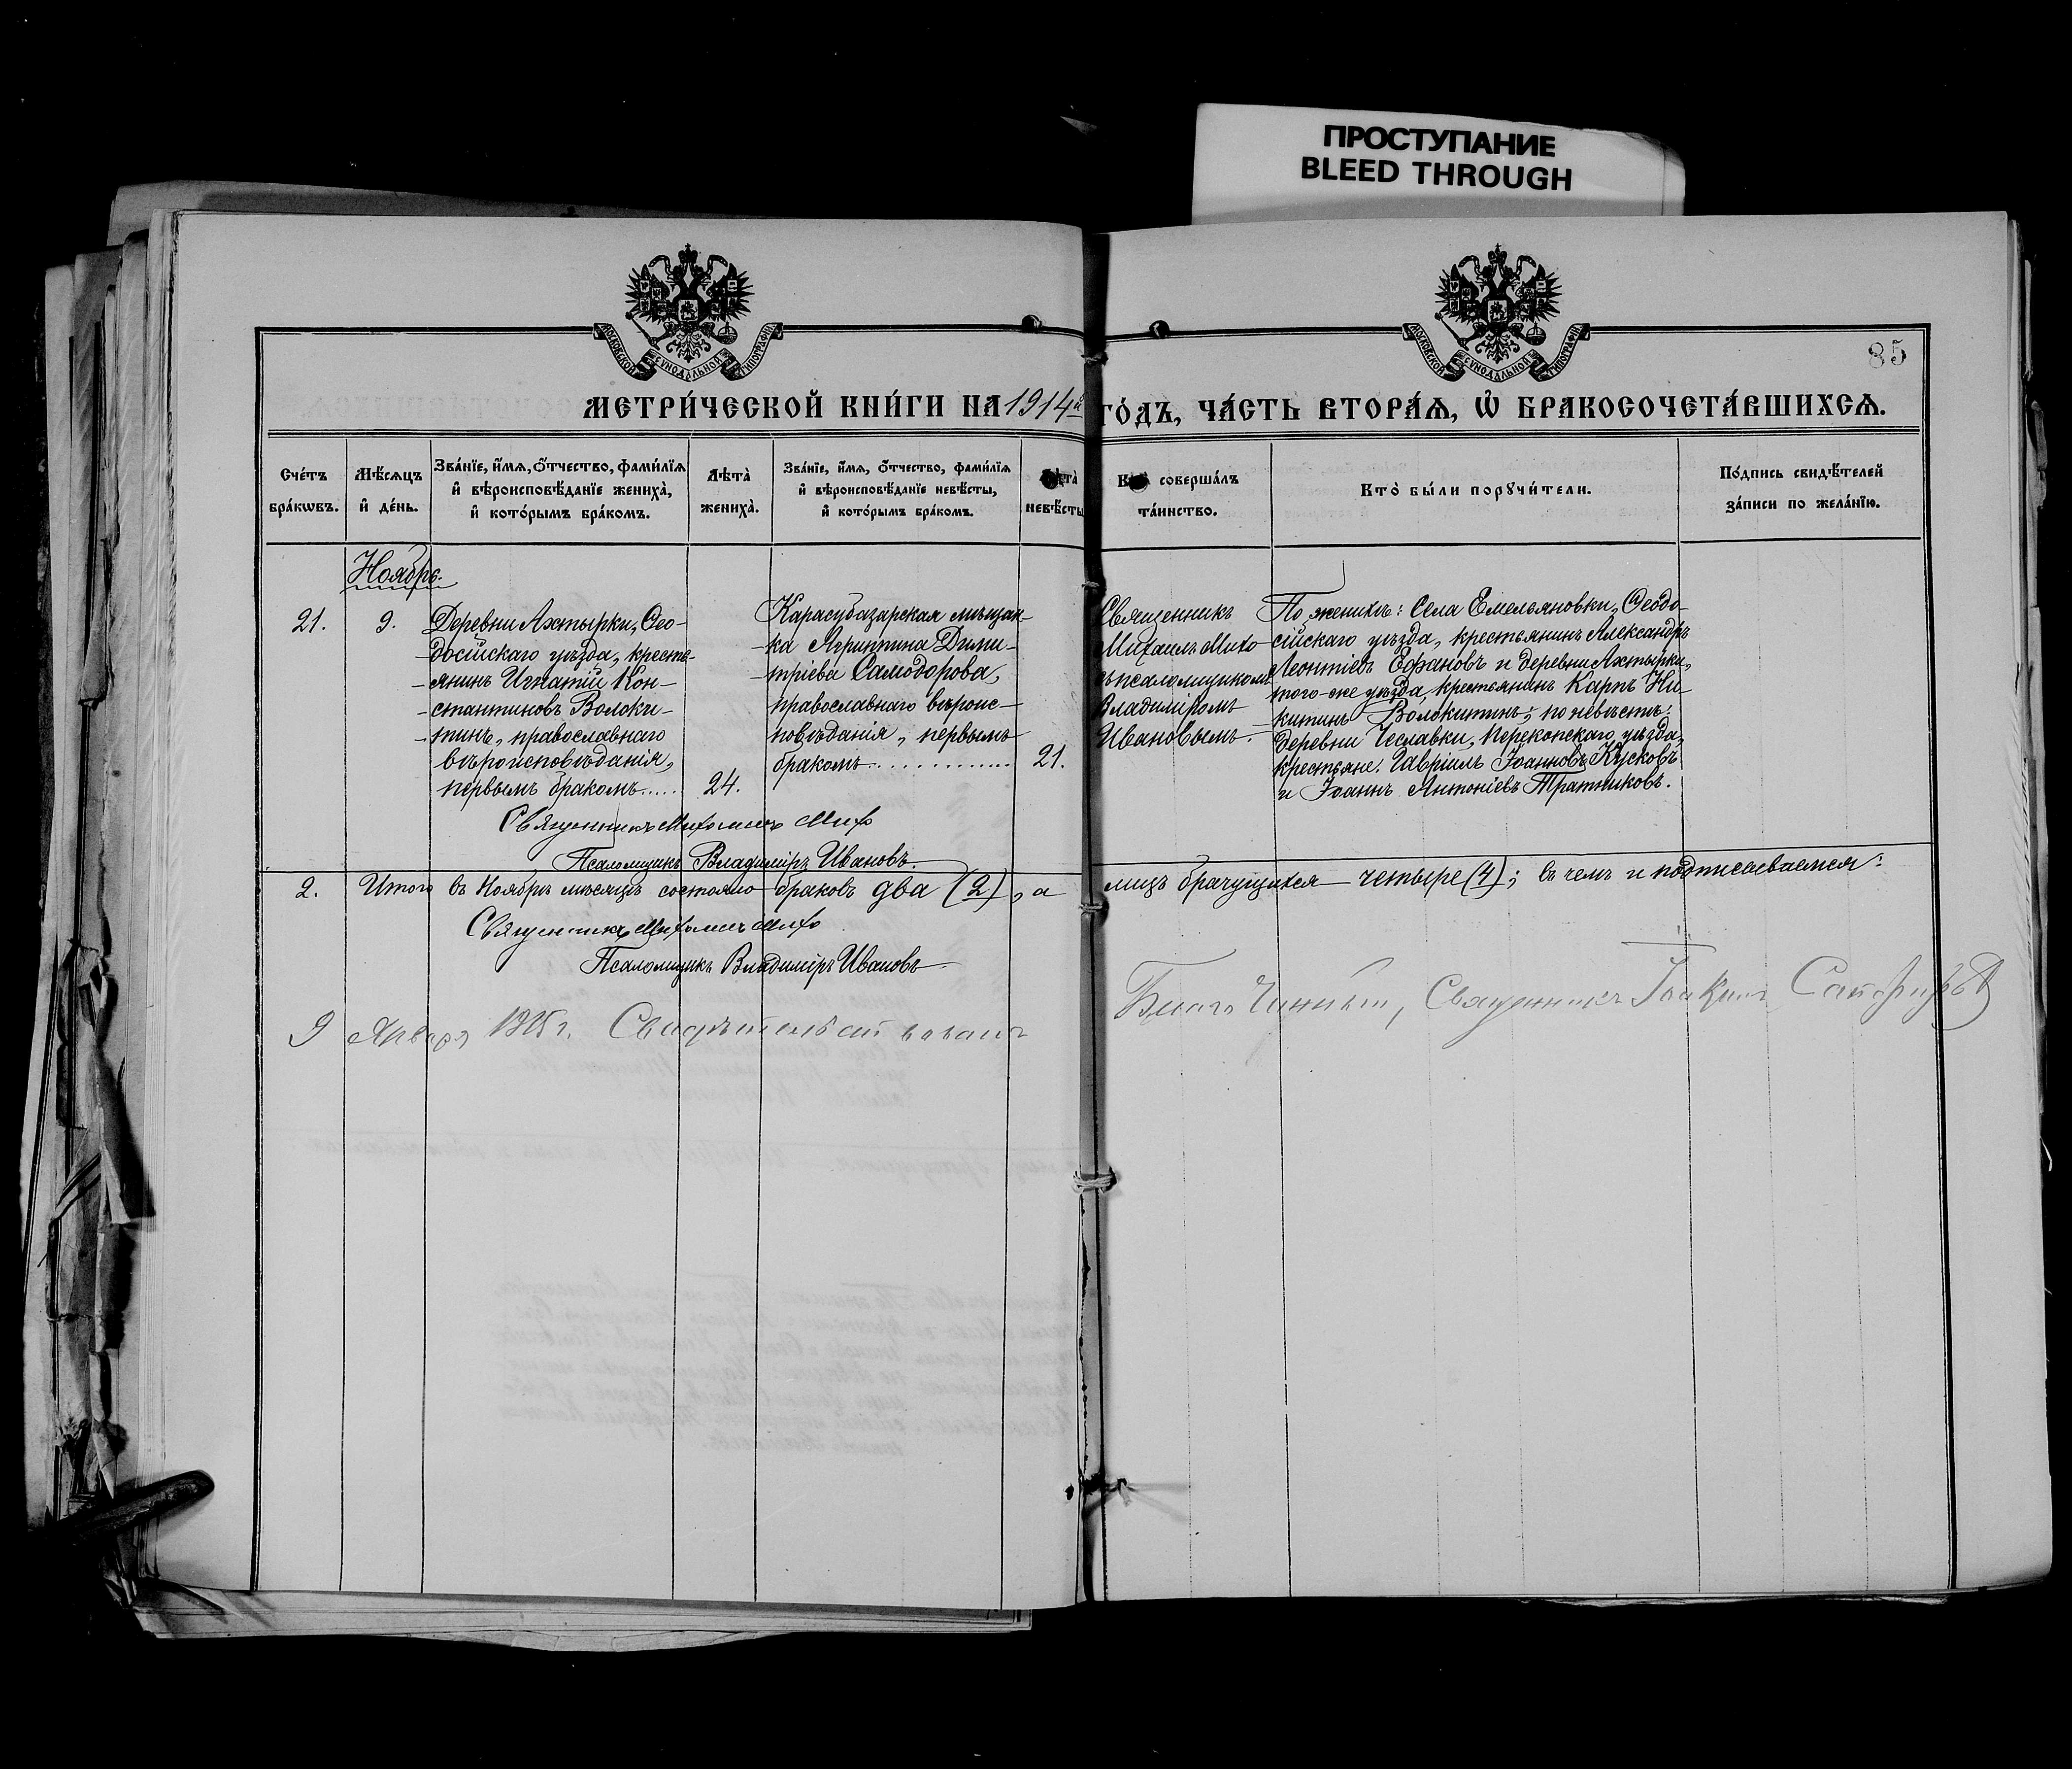 ПРОСТУПАНИЕ
BLEED THROUGH
МОСКОВСКОЙ СѴНОДАЛЬНОЙ ТИПОГРАФІИ
МОСКОВСКОЙ СѴНОДАЛЬНОЙ ТИПОГРАФІИ
85
МЕТРИ́ЧЕСКОЙ КНИ́ГИ НА 1914й ГО́ДЪ, ЧА́СТЬ ВТОРА́Ѧ, Ѡ҆ БРАКОСОЧЕТА́ВШИХСѦ.
Сче́тъ
бра́кѡвъ.
Мѣ́сѧцъ
и҆ де́нь.
Зва́нїе, и҆́мѧ, о҆́тчество, фами́лїѧ
и҆ вѣроисповѣ́данїе жениха̀,
и҆ кото́рымъ бра́комъ.
Лѣта̀
жениха̀.
Зва́нїе, и҆́мѧ, о҆́тчество, фами́лїѧ
и҆ вѣроисповѣ́данїе невѣ́сты,
и҆ кото́рымъ бра́комъ.
Лѣта̀
невѣ́сты
Кто̀ соверша́лъ
та́инство.
Кто̀ бы́ли порꙋчи́тели.
По́дпись свидѣ́телей
за́писи по жела́нїю.
Ноябрь.
21.
9.
Деревни Ахтырки, Ѳео-
досійскаго уѣзда, кресть-
янинъ Игнатій Кон-
стантиновъ Волоки-
тинъ, православнаго
вѣроисповѣданія,
первымъ бракомъ.....
24.
Карасубазарская мѣщан-
ка Агриппина Дими-
тріева Самодорова,
православнаго вѣроис-
повѣданія, первымъ
бракомъ............
21.
Священникъ
Михаилъ Михо
съ псаломщикомъ
Владиміромъ
Ивановымъ.
По женихѣ: Села Емельяновки, Ѳеодо-
сійскаго уѣзда, крестьянинъ Александръ
Леонтіевъ Ефановъ и деревни Ахтырки,
того-же уѣзда, крестьянинъ Карпъ Ни-
китинъ Волокитинъ; по невѣстѣ:
деревни Чеславки, Перекопскаго уѣзда,
крестьяне: Гавріилъ Іоанновъ Кусковъ
и Іоаннъ Антоніевъ Тратниковъ.
Священникъ Михаилъ Михо
Псаломщикъ Владиміръ Ивановъ.
2. Итого въ Ноябрѣ мѣсяцѣ состояло браковъ два (2), а лицъ брачущихся четыре (4); въ чемъ и подписываемся:
Священникъ Михаилъ Михо
Псаломщикъ Владиміръ Ивановъ
9 Января 1915 г. Свидѣтельствовалъ
Благочинный, Священникъ Іоакимъ